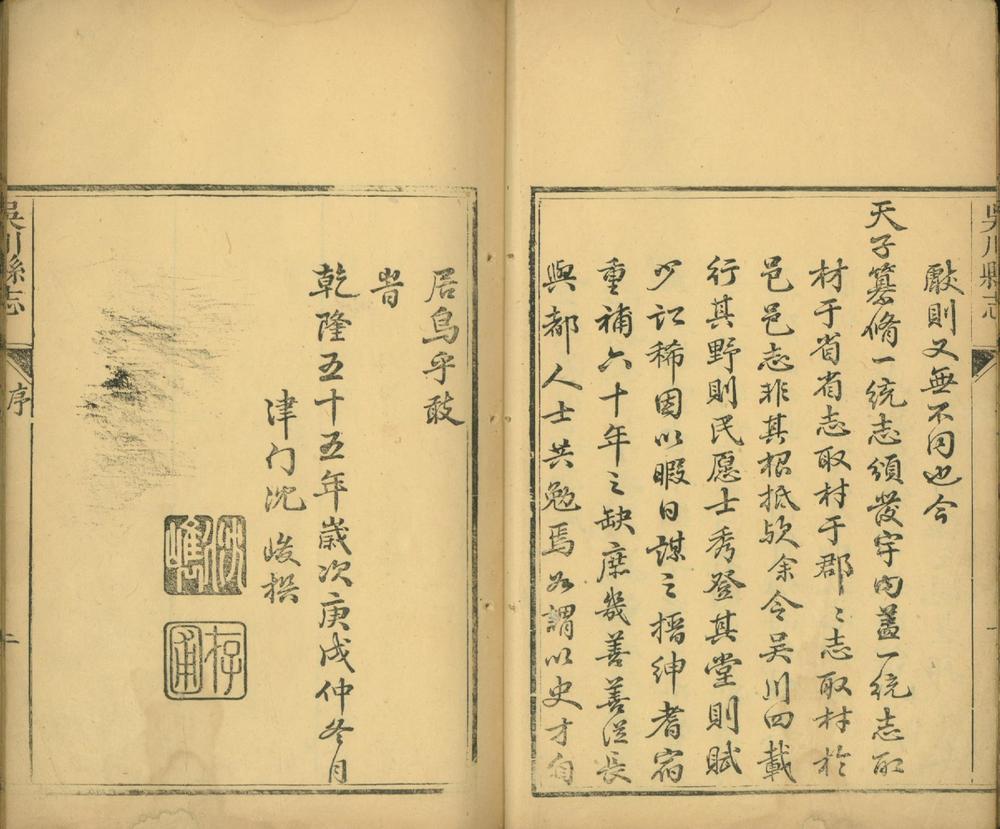 吳川縣志
厭則又無不同也今
天子纂脩一統志頒發宇內蓋一統志取
材于省省志取材于郡〻志取材於
邑邑志非其根抵欤余令吴川四載
行其野則民愿士秀登其堂則賦
少訟稀因以暇日謀之搢紳耆宿
重補六十年之缺庶幾善善從長
與都人士共勉焉如謂以史才自
居烏乎敢
旹
乾隆五十五年歲次庚戌仲冬月
津门沈峻撰
沈峻
存甫
吳川縣志
序